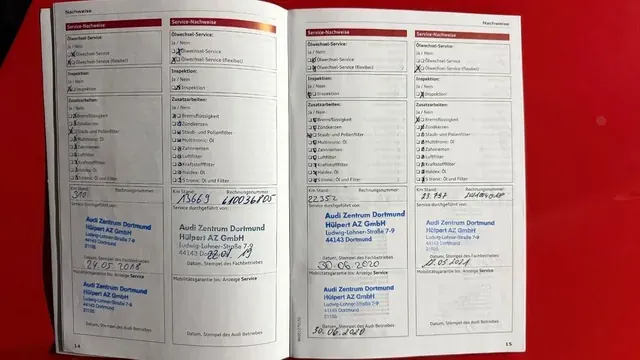 Nachweise
Service-Nachweise
Ölwechsel-Service:
Ja / Nein
Ölwechsel-Service
Ölwechsel-Service (flexibel)
Inspektion:
Ja / Nein
Inspektion
Zusatzarbeiten:
Ja / Nein
Bremsflüssigkeit
Zündkerzen
Staub- und Pollenfilter
Multitronic: Öl
Zahnriemen
Luftfilter
Kraftstofffilter
Haldex: Öl
S tronic: Öl und Filter
Km Stand: Rechnungsnummer:
Service durchgeführt von:
Audi Zentrum Dortmund
Hülpert AZ GmbH
Ludwig-Lohner-Straße 7-9
44143 Dortmund
31106
24.05.2018
Datum, Stempel des Fachbetriebes
Mobilitätsgarantie bis: Anzeige Service
Audi Zentrum Dortmund
Hülpert AZ GmbH
Ludwig-Lohner-Straße 7-9
44143 Dortmund
31106
Datum, Stempel des Audi Betriebes
14
Service-Nachweise
Ölwechsel-Service:
Ja / Nein
Ölwechsel-Service
Ölwechsel-Service (flexibel)
Inspektion:
Ja / Nein
Inspektion
Zusatzarbeiten:
Ja / Nein
Bremsflüssigkeit
Zündkerzen
Staub- und Pollenfilter
Multitronic: Öl
Zahnriemen
Luftfilter
Kraftstofffilter
Haldex: Öl
S tronic: Öl und Filter
Km Stand: Rechnungsnummer:
13669
Service durchgeführt von:
Audi Zentrum Dortmund
Hülpert AZ GmbH
Ludwig-Lohner-Straße 7-9
44143
Datum, Stempel des Fachbetriebes
Mobilitätsgarantie bis: Anzeige Service
Datum, Stempel des Audi Betriebes
Nachweise
Service-Nachweise
Ölwechsel-Service:
Ja / Nein
Ölwechsel-Service
Ölwechsel-Service (flexibel)
Inspektion:
Ja / Nein
Inspektion
Zusatzarbeiten:
Ja / Nein
Bremsflüssigkeit
Zündkerzen
Staub- und Pollenfilter
Multitronic: Öl
Zahnriemen
Luftfilter
Kraftstofffilter
Haldex: Öl
S tronic: Öl und Filter
Km Stand: Rechnungsnummer:
22352
Service durchgeführt von:
Audi Zentrum Dortmund
Hülpert AZ GmbH
Ludwig-Lohner-Straße 7-9
44143 Dortmund
30.06.2020
Datum, Stempel des Fachbetriebes
Mobilitätsgarantie bis: Anzeige Service
Audi Zentrum Dortmund
Hülpert AZ GmbH
Ludwig-Lohner-Straße 7-9
44143 Dortmund
31106
30.06.2020
Datum, Stempel des Audi Betriebes
Service-Nachweise
Ölwechsel-Service:
Ja / Nein
Ölwechsel-Service
Ölwechsel-Service (flexibel)
Inspektion:
Ja / Nein
Inspektion
Zusatzarbeiten:
Ja / Nein
Bremsflüssigkeit
Zündkerzen
Staub- und Pollenfilter
Multitronic: Öl
Zahnriemen
Luftfilter
Kraftstofffilter
Haldex: Öl
S tronic: Öl und Filter
Km Stand: Rechnungsnummer:
Service durchgeführt von:
Audi Zentrum Dortmund
Hülpert AZ GmbH
Ludwig-Lohner-Straße 7-9
44143 Dortmund
31106
Datum, Stempel des Fachbetriebes
Mobilitätsgarantie bis: Anzeige Service
Datum, Stempel des Audi Betriebes
15